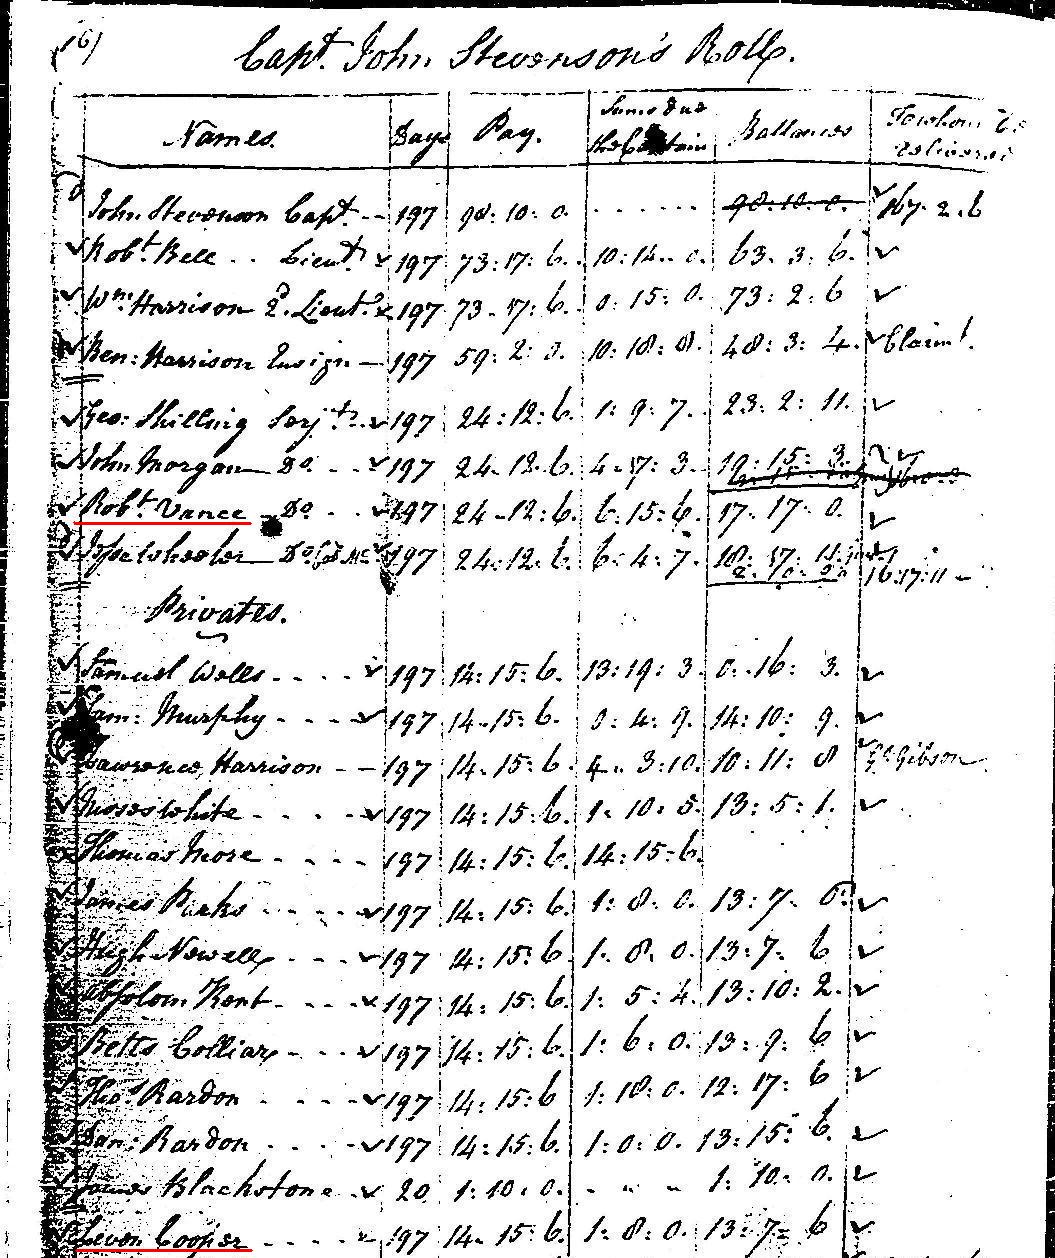 (6)
Capt. John Stevenson's Roll.
Names. Days Pay. Sums due the Captain Ballances To whom Delivered
John Stevenson Capt. -- 197 98. 10: 0. ...... 98. 10. 0. 167. 2. 6
Robt. Bell .. Lieut. 197 73: 17: 6. 10: 14. 0. 63. 3: 6.
Wm. Harrison 2d. Lieut. 197 73. 17: 6. 0: 15: 0. 73: 2: 6
Ben: Harrison Ensign — 197 59: 2: 0. 10: 18: 8. 48: 3: 4. Claimt.
Geo: Shilling Serjt. 197 24: 12: 6. 1: 9: 7. 23: 2: 11.
John Morgan Do. .. 197 24. 12. 6. 4. 17: 3. 19: 15: 3.
Robt. Vance Do. . 197 24-12: 6. 6. 15: 6. 17. 17. 0.
Wheeler Do. 197 24: 12. 6. 6: 4: 7. 18: 17: 11 16:17:11
Privates.
Samuel Wells .... 197 14: 15: 6. 13: 19: 3. 0. 16: 3.
Sam: Murphy --- 197 14-15: 6. 0: 4: 9. 14: 10: 9.
Lawrence Harrison -- 197 14. 15: 6. 4.. 3:10. 10: 11: 8 Gibson
Moses White .... 197 14: 15: 6. 1: 10: 5. 13: 5: 1.
Thomas More .... 197 14: 15: 6. 14: 15-6.
James Parks .... 197 14: 15: 6. 1: 8: 0. 13: 7. 6.
Hugh Newell ... 197 14: 15: 6. 1: 8. 0. 13: 7. 6
Absolom Kent .... 197 14: 15: 6. 1: 5: 4. 13: 10: 2.
Betts Colliar ... 197 14: 15: 6. 1: 6: 0. 13: 9: 6
Thos. Rardon .... 197 14: 15: 6 1: 18: 0. 12: 17: 6
Dan: Rardon .... 197 14: 15: 6. 1: 0: 0. 13: 15: 6.
James Blackstone . 20 1: 10: 0. - " - 1: 10: 0.
Leven Cooper .... 197 14: 15: 6. 1: 8: 0. 13: 7: 6